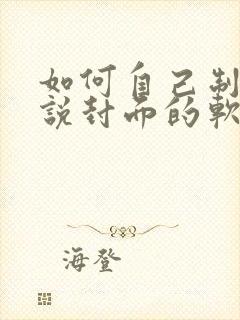 如何自己制
說封面的軟
海登